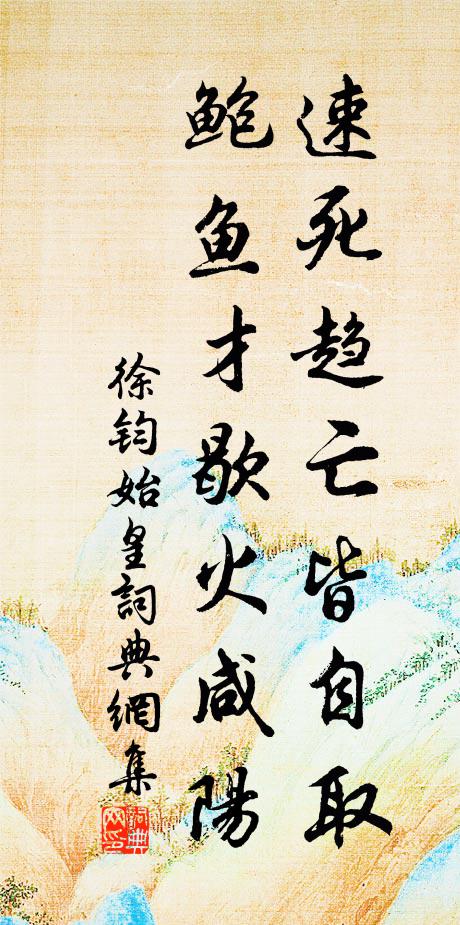 速死趋亡皆自取
鲍鱼才歇火咸陽
徐钧始皇詞典網集
詞典
网印